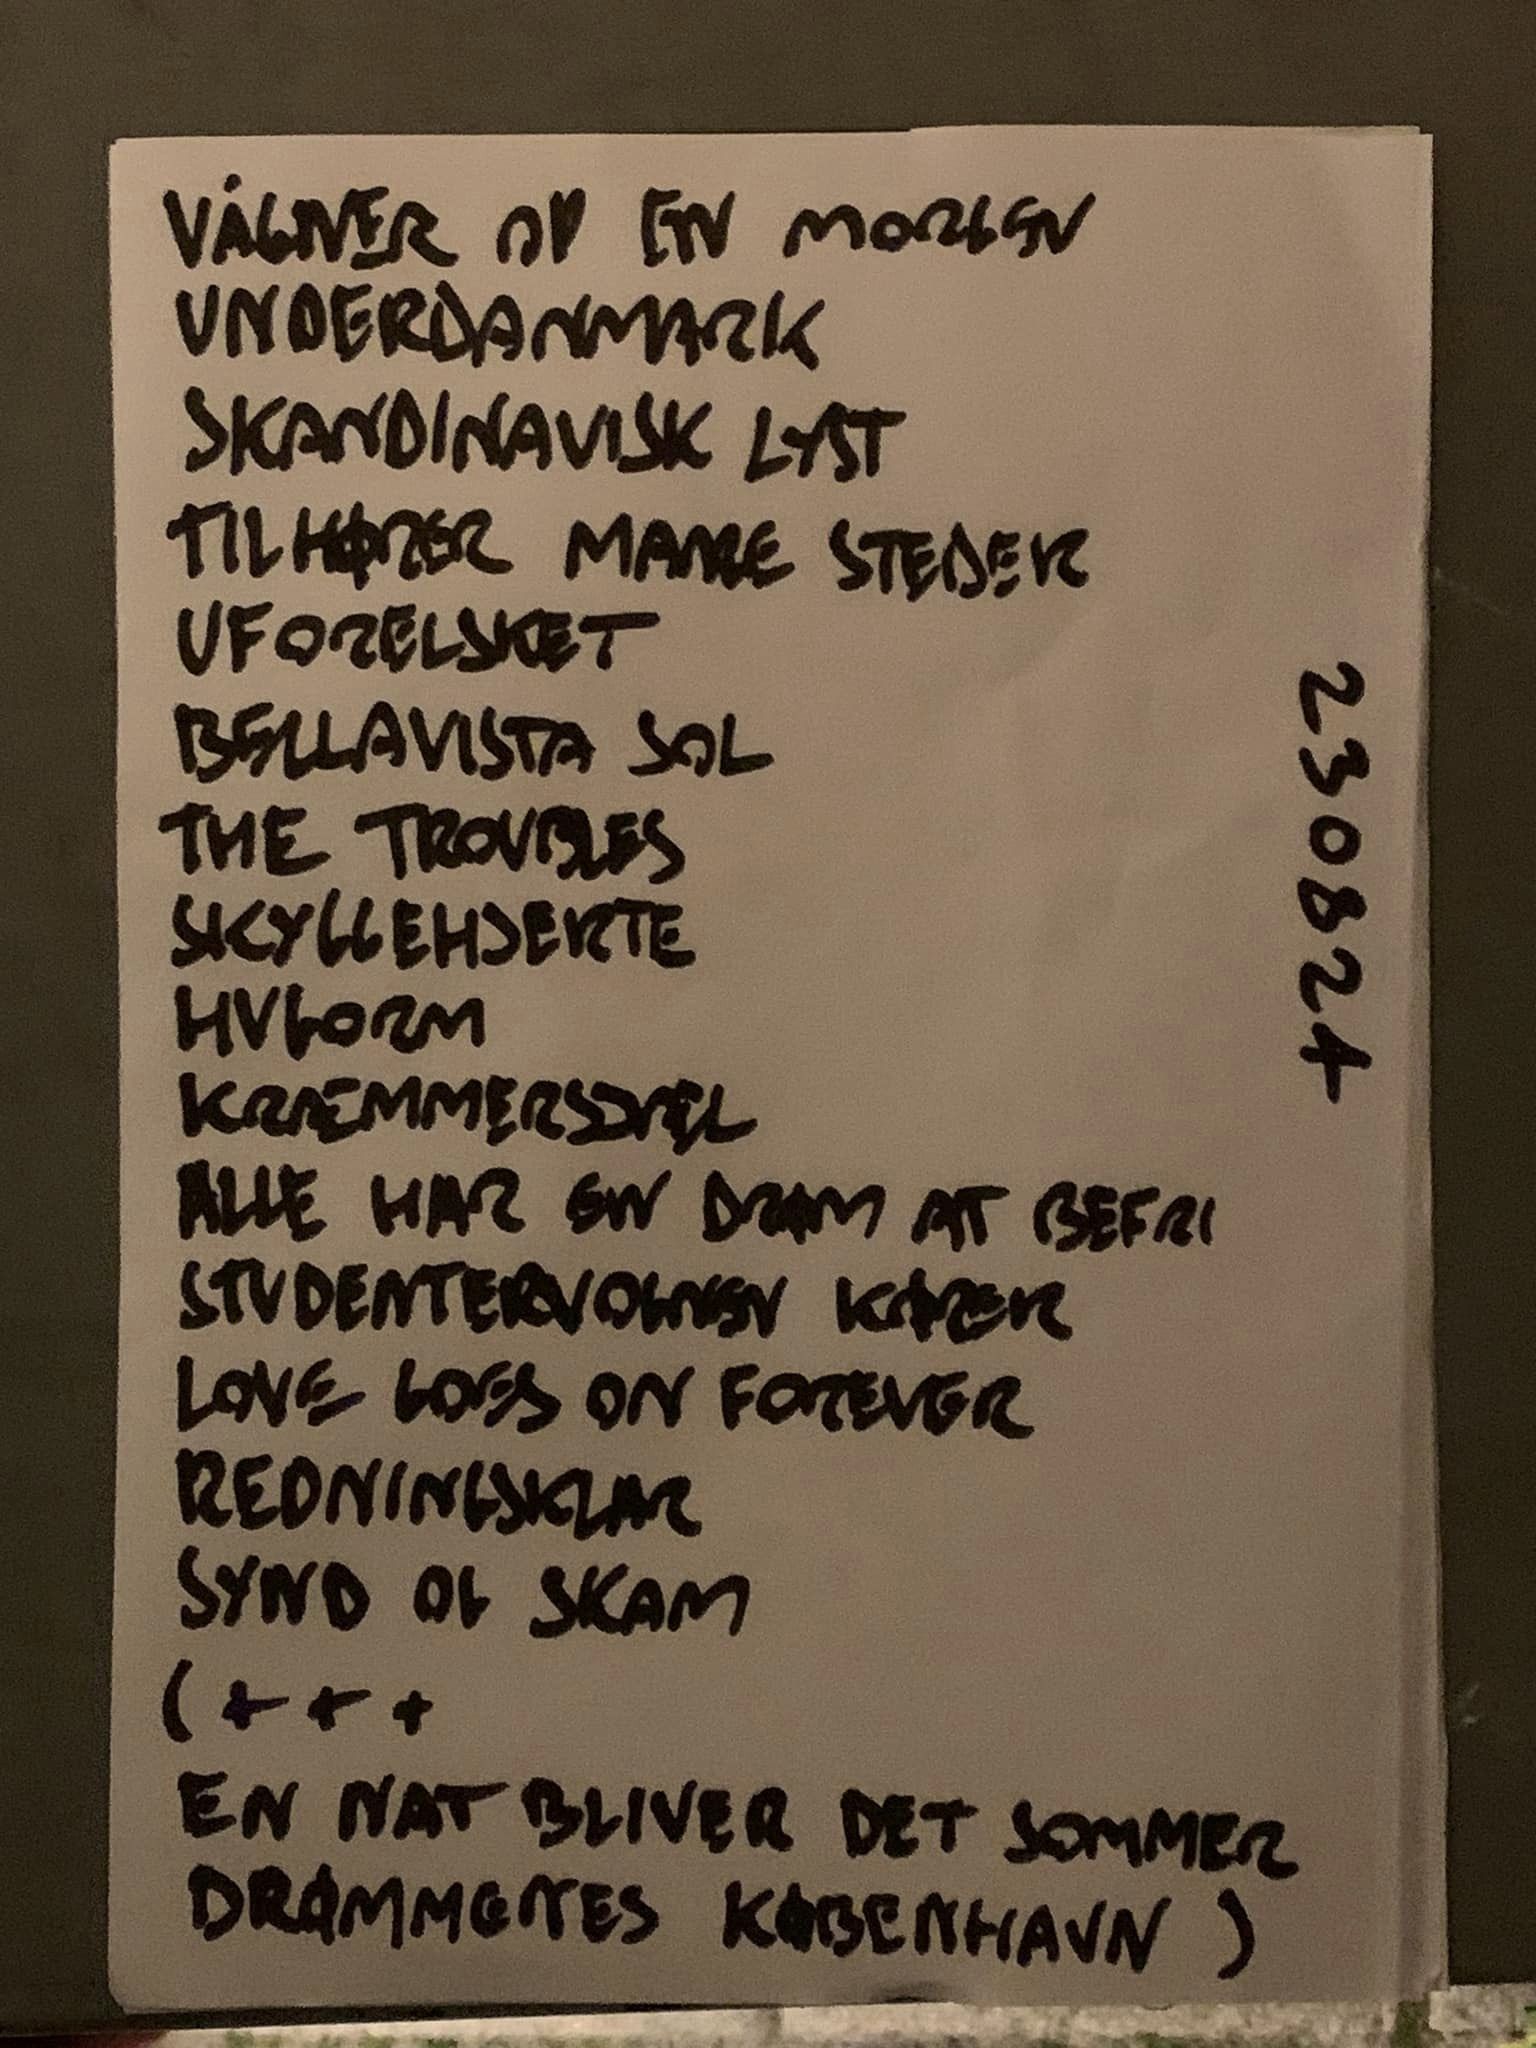 VÅGNER OP EN MORGEN
UNDERDANMARK
SKANDINAVISK LYST
TILHØRER STEDER
UFORELSKET
BELLAVISTA SOL
THE TROUBLES
SKYGGEHJERTE
HUGORM
KRÆMMERSJÆL
ALLE HAR EN DRØM AT BEFRI
STUDENTERVOGNEN KØRER
LOVE GOES ON FOREVER
REDNINGSKLAR
SYND OG SKAM
(+ + +
EN NAT BLIVER DET SOMMER
DRØMMENES KØBENHAVN )
230824